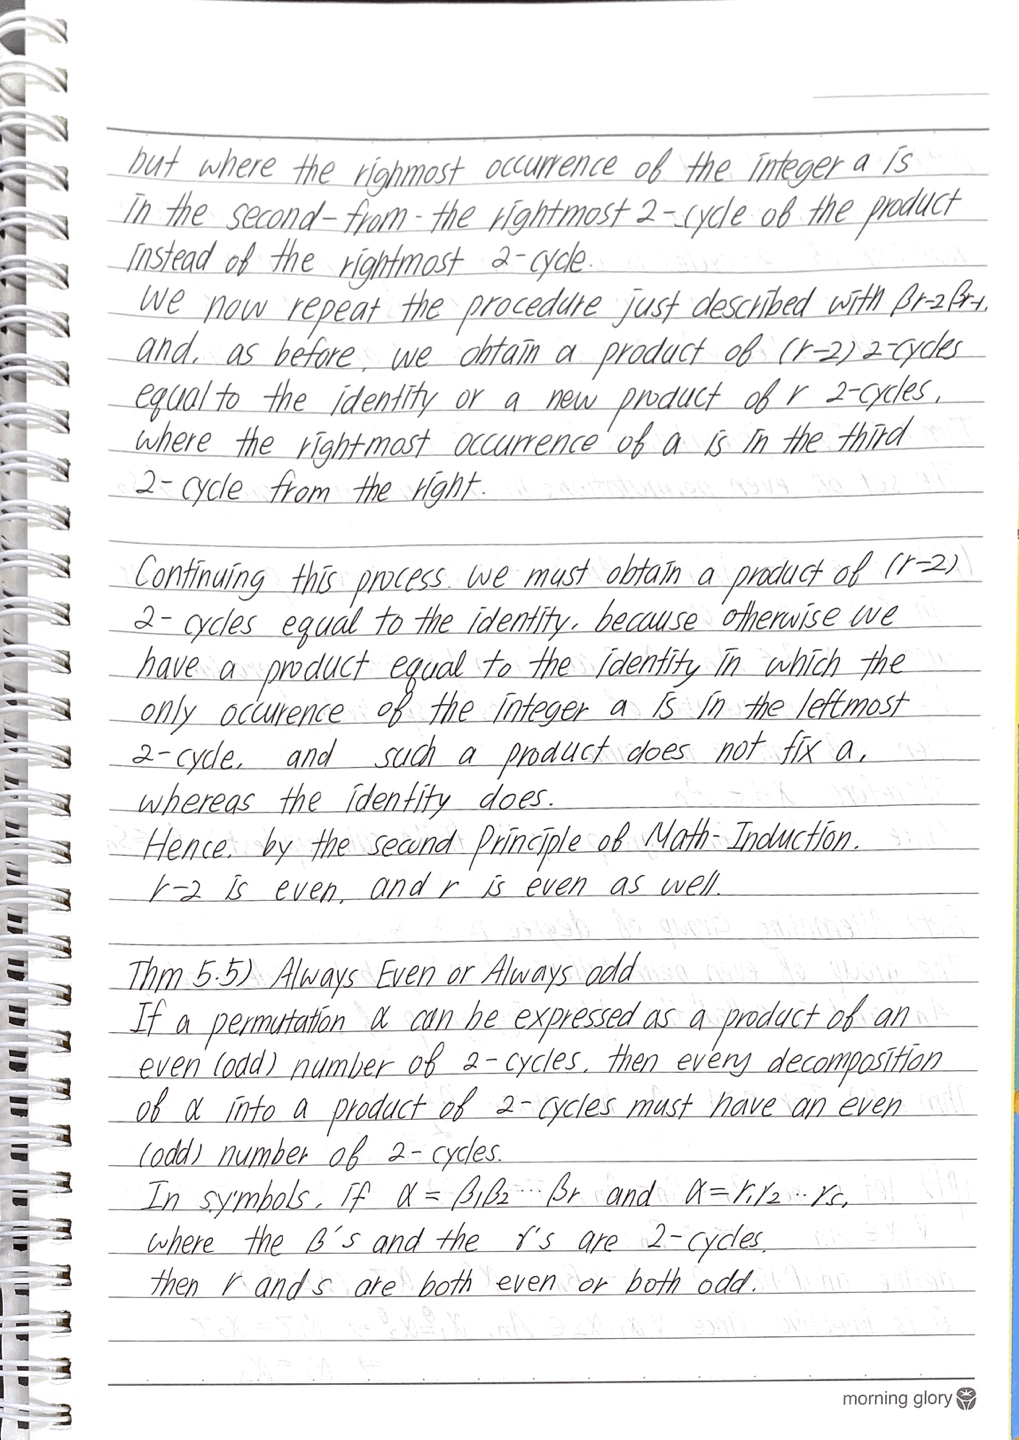 but where the righmost occurrence of the integer a is
in the second-from-the rightmost 2-cycle of the product
instead of the rightmost 2-cycle.
We now repeat the procedure just described with βr-2βr-1,
and, as before, we obtain a product of (r-2) 2-cycles
equal to the identity or a new product of r 2-cycles,
where the rightmost occurrence of a is in the third
2-cycle from the right.
Continuing this process, we must obtain a product of (r-2)
2-cycles equal to the identity, because otherwise we
have a product equal to the identity in which the
only occurence of the integer a is in the leftmost
2-cycle, and such a product does not fix a,
whereas the identity does.
Hence, by the second Principle of Math-Induction,
r-2 is even, and r is even as well.
Thm 5.5) Always Even or Always odd
If a permutation α can be expressed as a product of an
even (odd) number of 2-cycles, then every decomposition
of α into a product of 2-cycles must have an even
(odd) number of 2-cycles.
In symbols, if α = β1β2 ··· βr and α = γ1γ2 ··· γs,
where the β's and the γ's are 2-cycles,
then r and s are both even or both odd.
morning glory